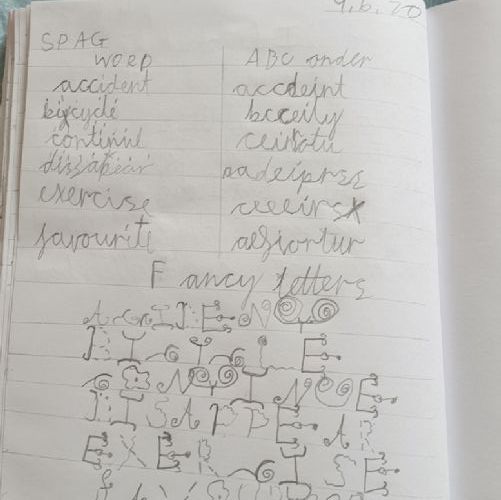 9.6.20
SPAG
WORD ABC order
accident accdeint
bicycle bcceily
continue
dissapear aadeiprss
exercise ceeeirsx
favourite aefiortuv
Fancy letters
ACCIDENT
BICYCLE
CONTINUE
DISAPPEAR
EXERCISE